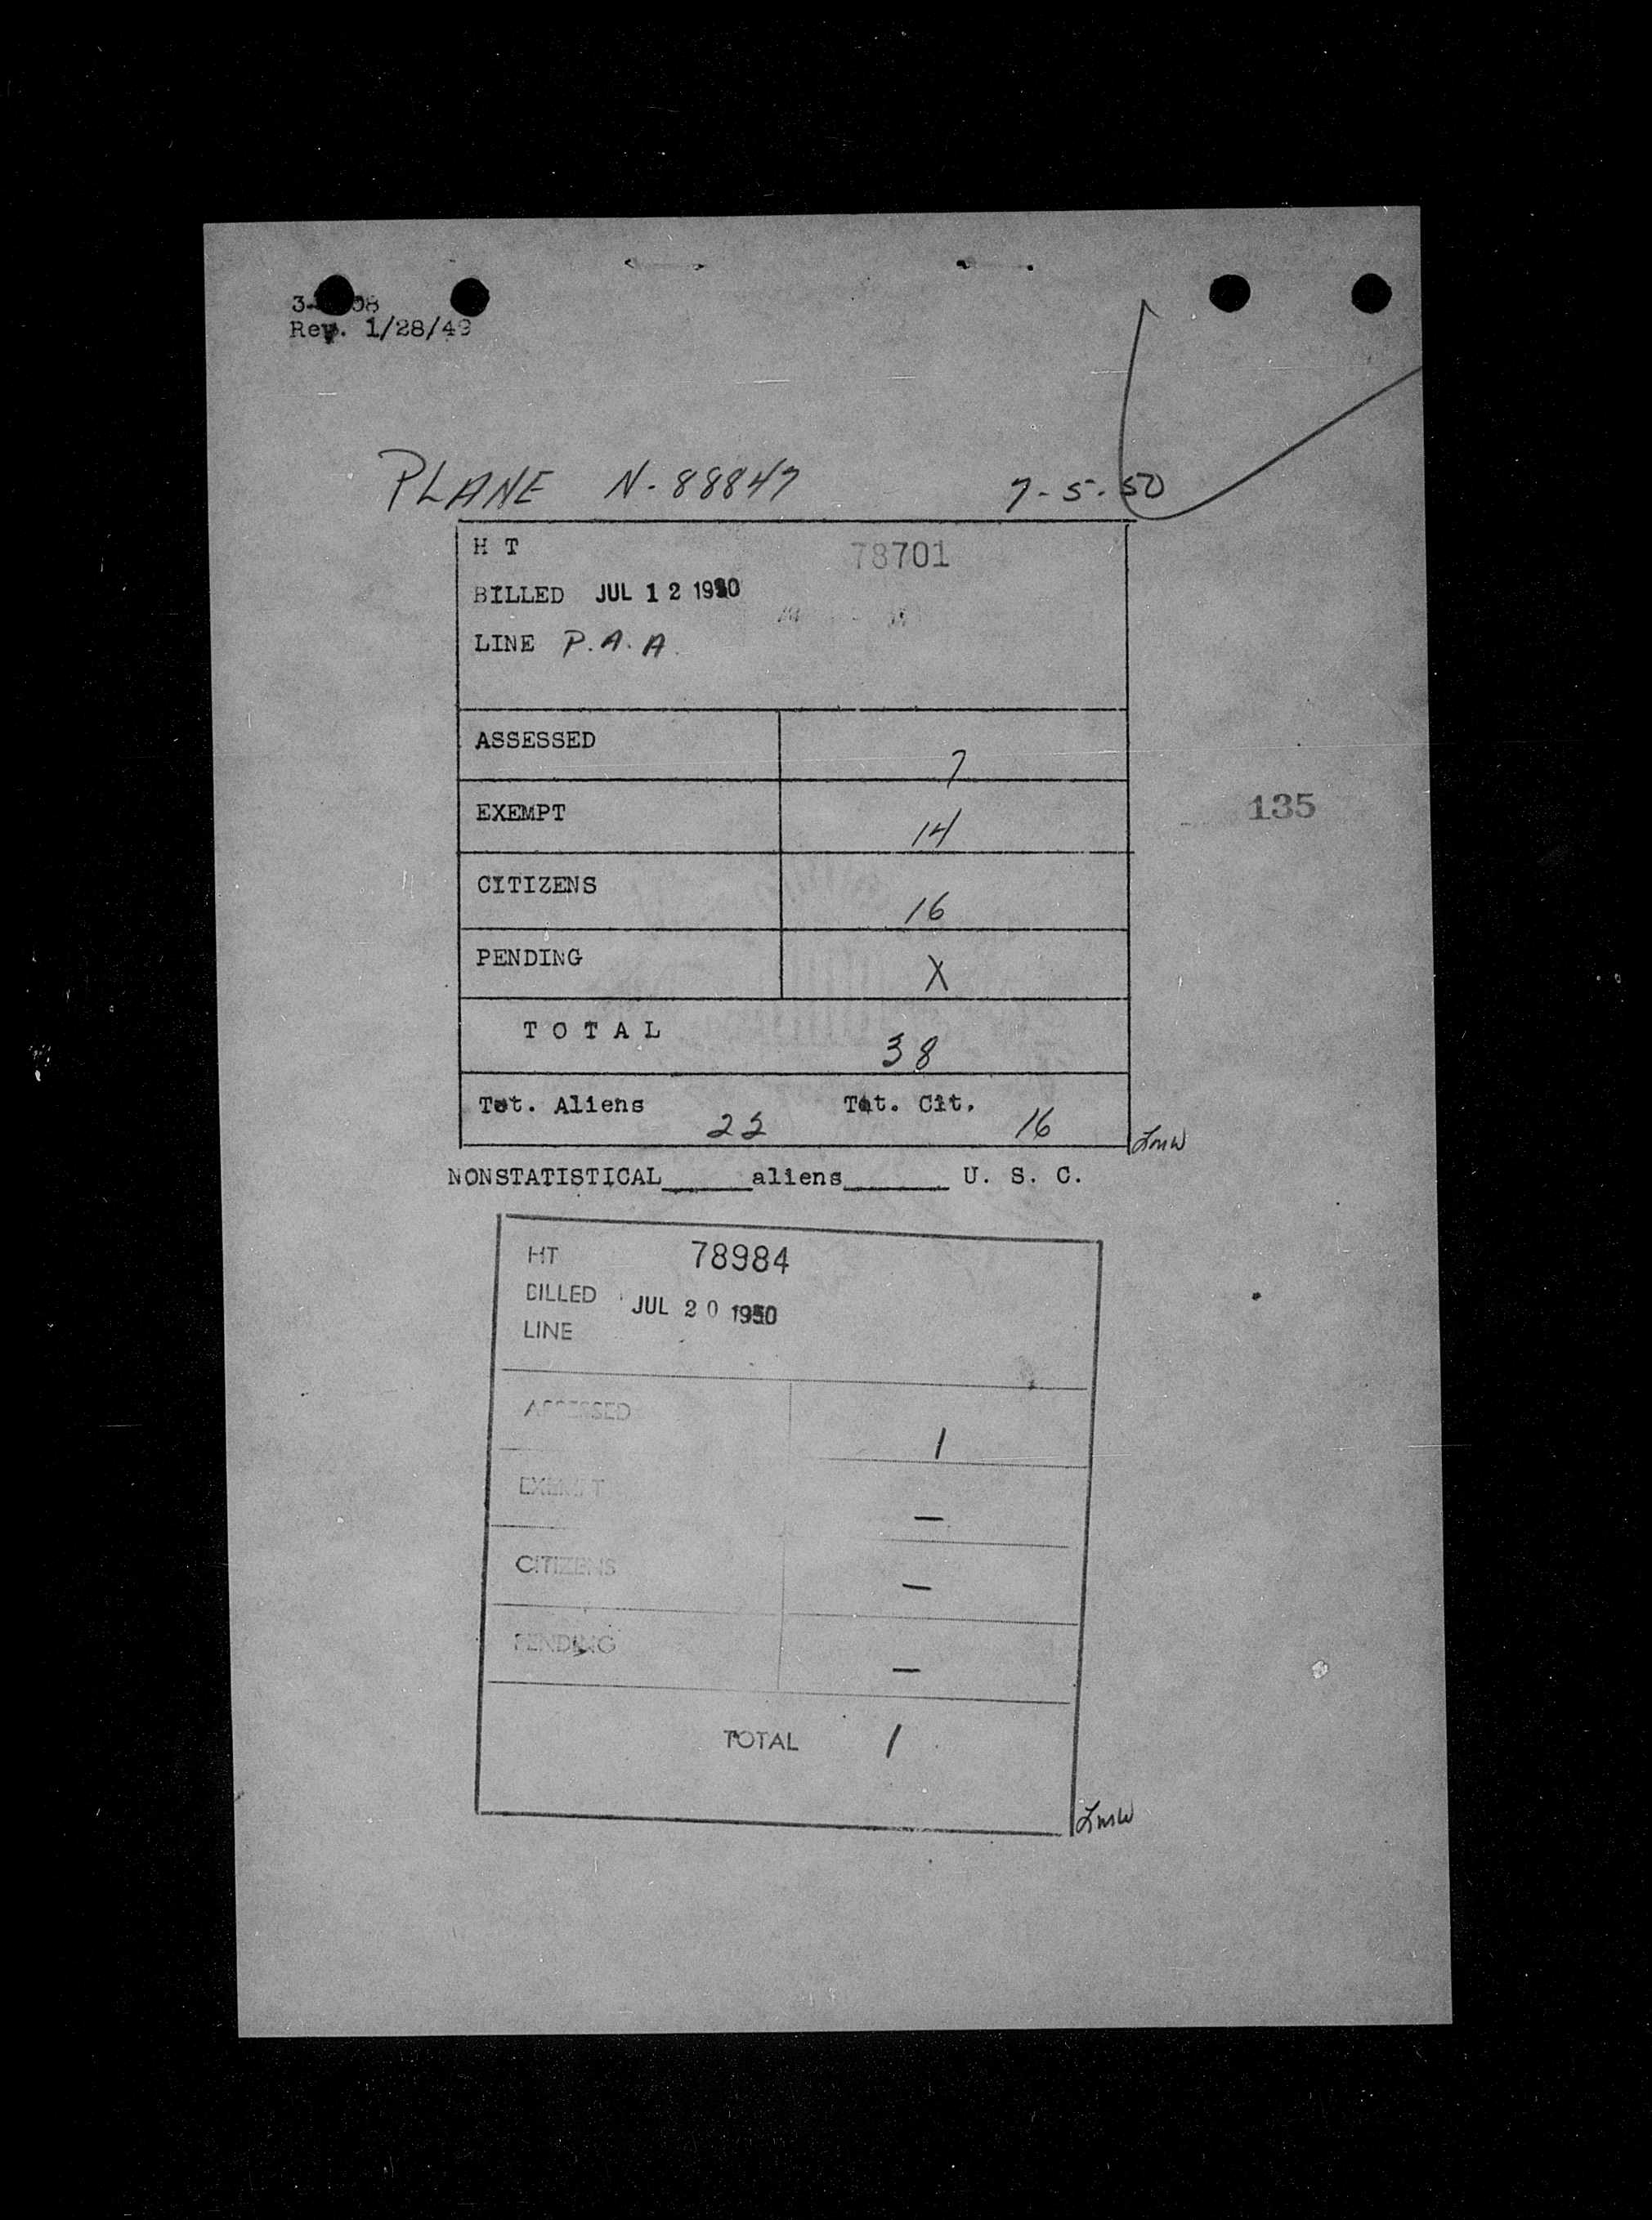 Rev. 1/28/49
PLANE N-88847 7-5-50
H T 78701
BILLED JUL 12 1950
LINE P.A.A.
ASSESSED 7
EXEMPT 14
135
CITIZENS 16
PENDING X
TOTAL 38
Tot. Aliens 22 Tot. Cit. 16
NONSTATISTICAL_____aliens______ U. S. C.
HT 78984
BILLED JUL 20 1950
LINE
ASSESSED 1
EXEMPT —
CITIZENS —
PENDING —
TOTAL 1